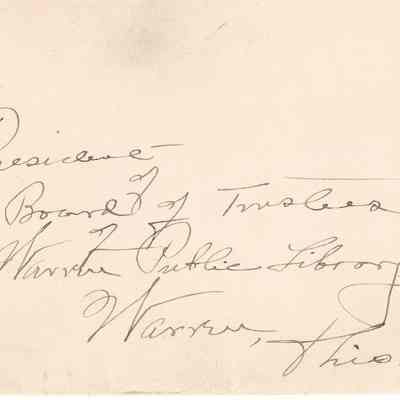 President
of
Board of Trustees
of
Warren Public Library
Warren, Ohio.